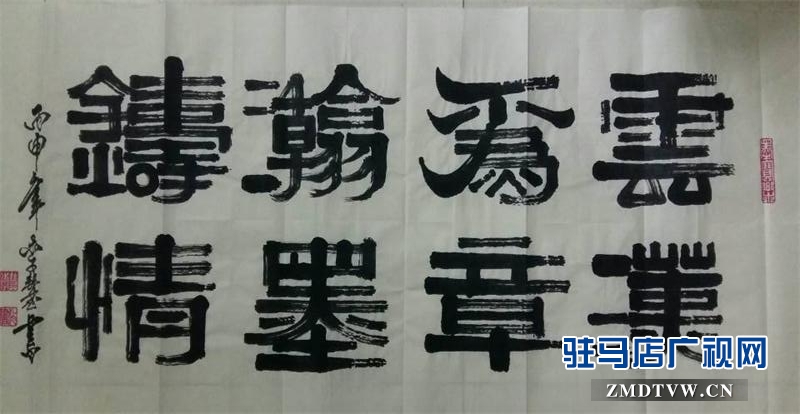 雲葉
為章
瀚墨
鑄情
丙申年 書
驻马店广视网
ZMDTVW.CN